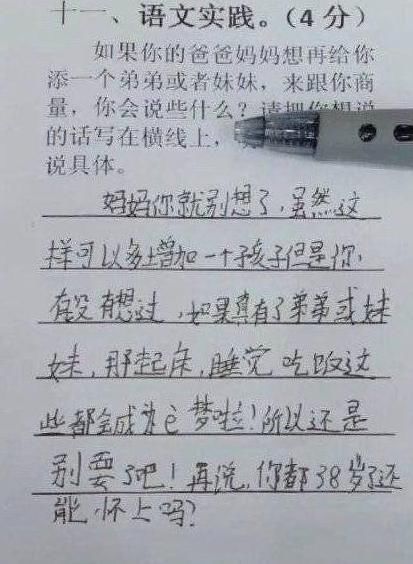 十一、语文实践。（4分）
如果你的爸爸妈妈想再给你
添一个弟弟或者妹妹，来跟你商
量，你会说些什么？请把你想说
的话写在横线上，
说具体。
妈妈你就别想了，虽然这
样可以多增加一个孩子但是你，
有没有想过，如果真有了弟弟或妹
妹，那起床，睡觉吃饭这
些都会成为 梦啦！所以还是
别要了吧！再说，你都38岁了还
能怀上吗？